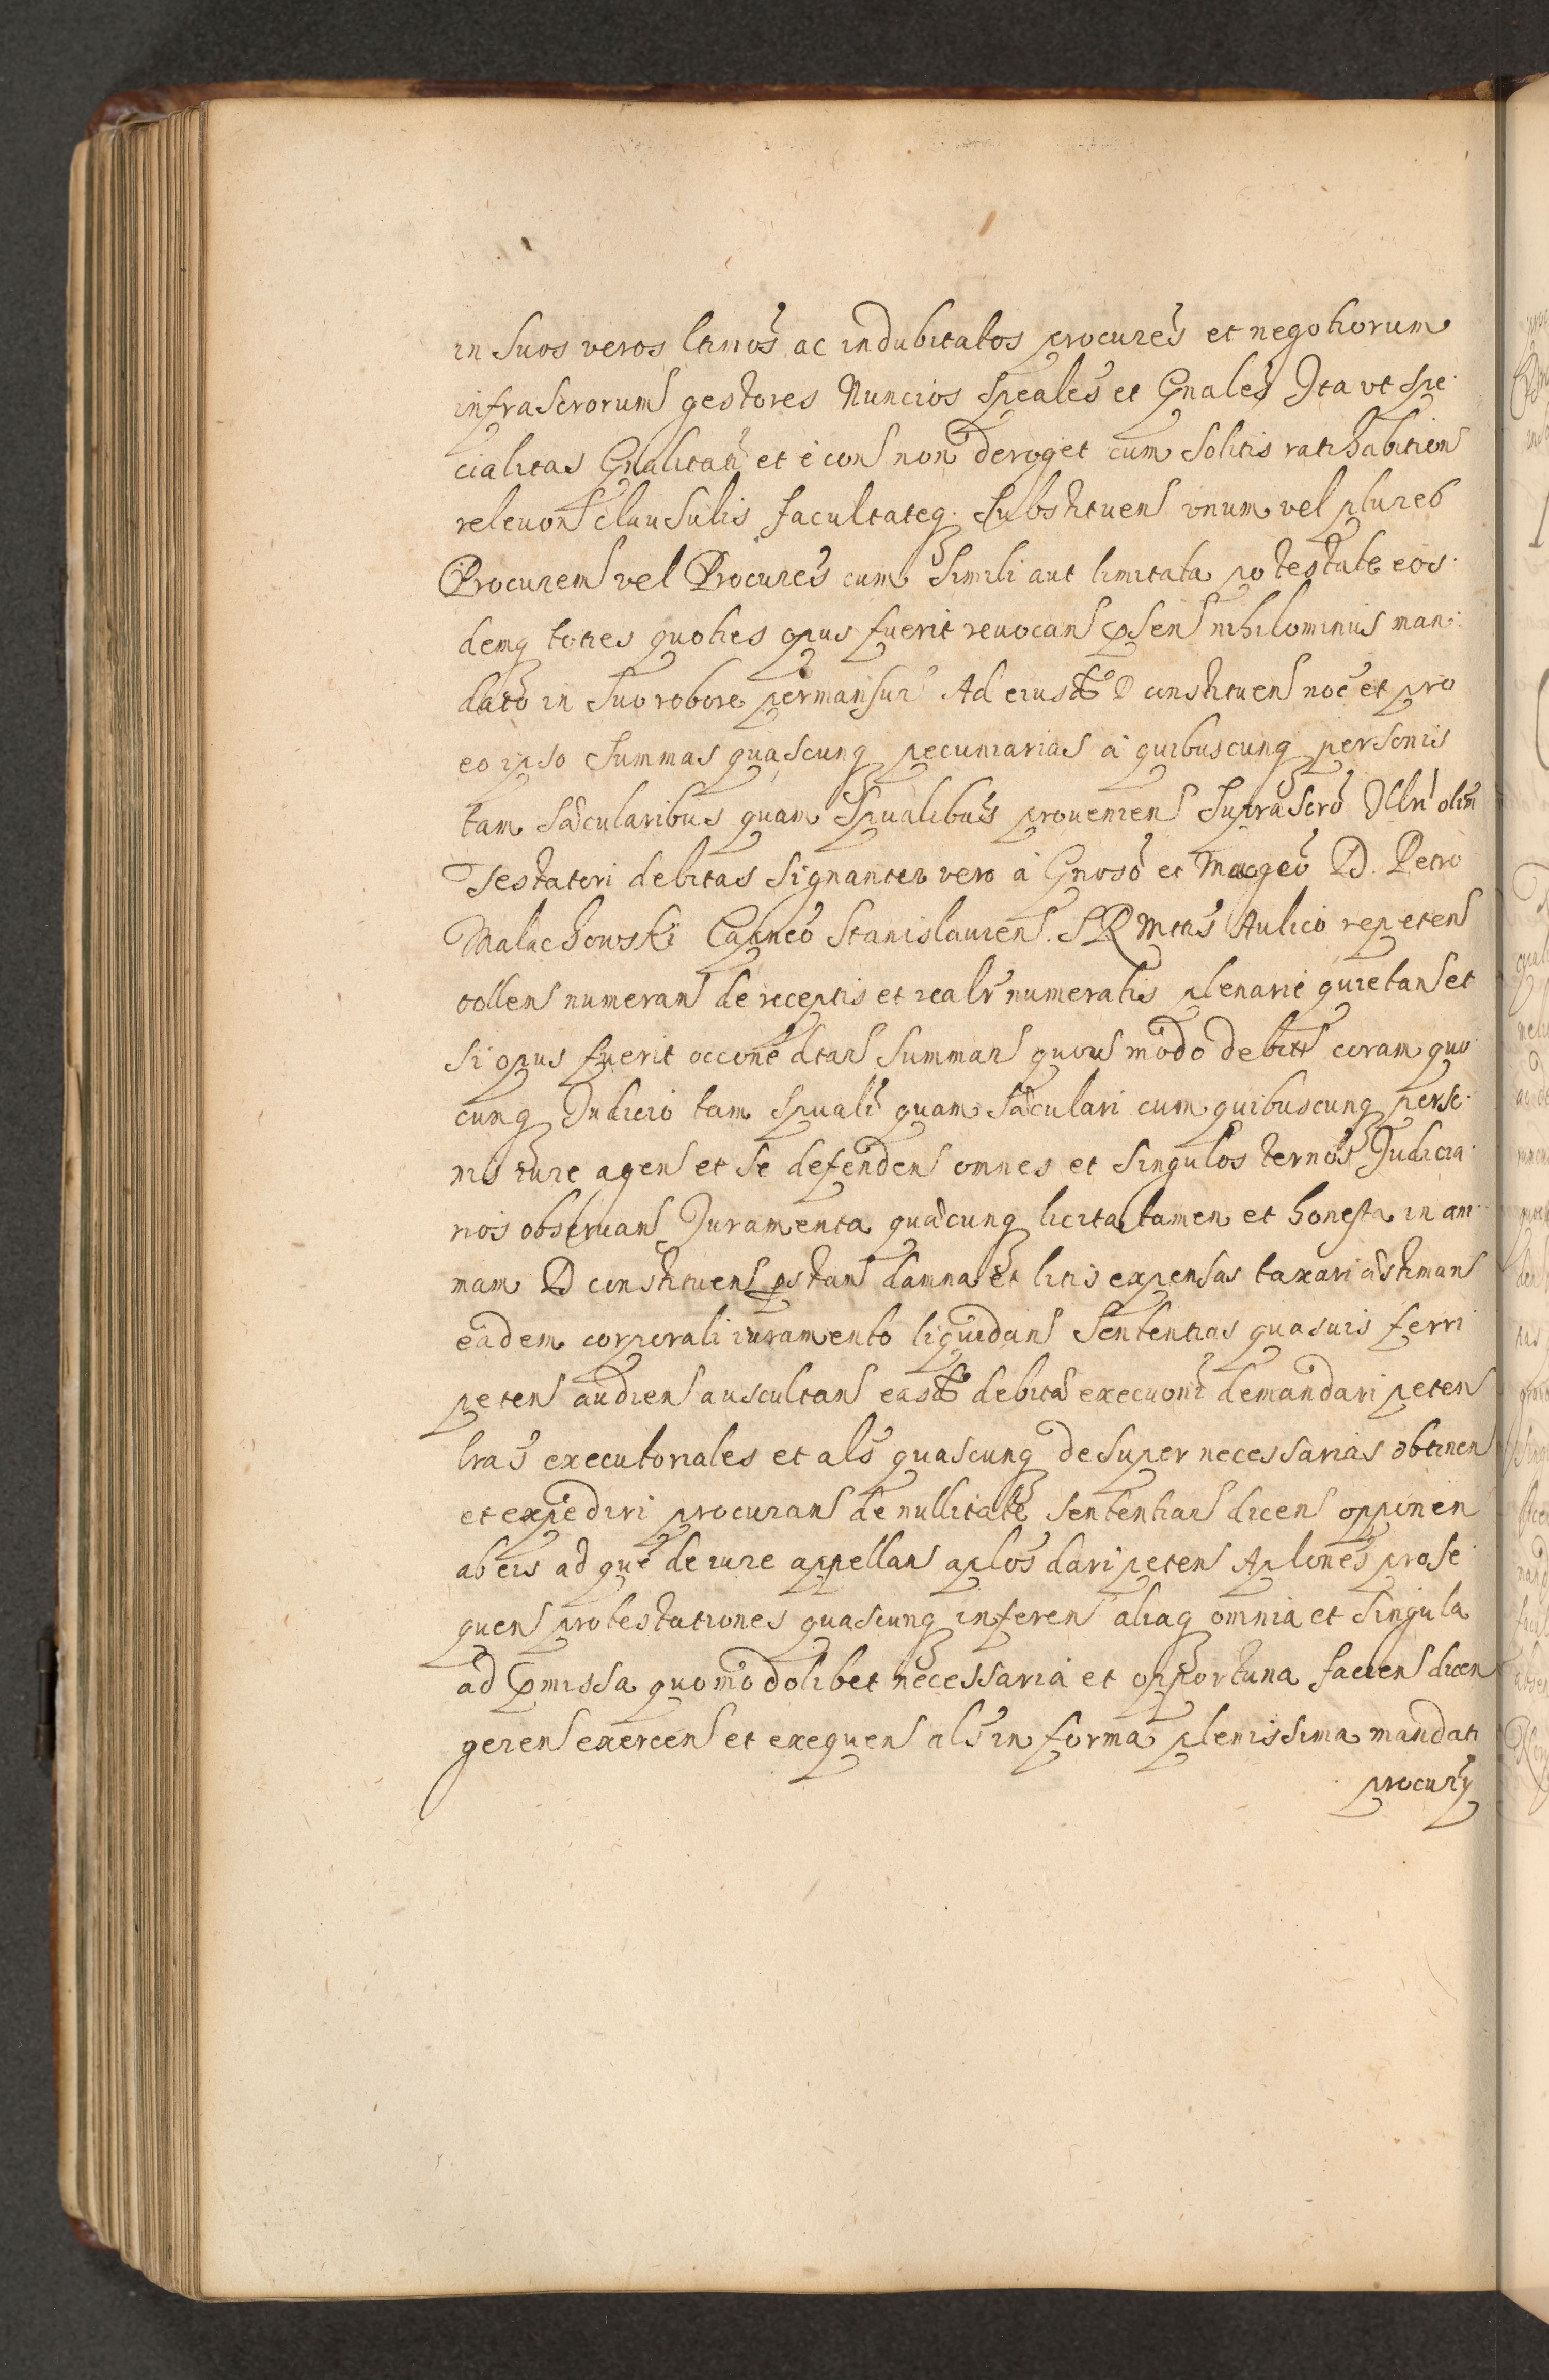 in suos veros ltimos ac indubitatos procures et negotiorum
infrascrorum gestores Nuncios speales et Gnales Ita vt spe
cialitas Gnalitati et e con non deroget cum solitis ratihabition
releuon clausulis facultateq. substituen vnum vel plures
Procurem vel Procures cum simili aut limitata potestate eos
demq toties quoties opus fuerit reuocan psen nihilominus man
dato in suo robore permansur Ad eiusd D constituen noe et pro
eo ipso summas quascunq pecuniarias a quibuscunq personis
tam sæcularibus quam Spualibus prouenien suprascro Illri olim
Testatori debitas signanter vero a Gnoso et Magco D. Petro
Malachowski Capneo Stanislauien. S R Mtis Aulico repeten
tollen numeran de receptis et realr numeratis plenarie quietan et
si opus fuerit occone dtar summar quouismodo debit coram quo
cunq Iudicio tam spuali quam sæculari cum quibuscunq perso
nis iure agen et se defenden omnes et singulos ternos Iudicia
rios obseruan Iuramenta quæcunq licita tamen et honesta in ani
mam D constituen pstan damna et litis expensas taxari æstiman
eadem corporali iuramento liquidan sententias quasuis ferri
peten audien auscultan easd debitæ execuoni demandari peten
lras executoriales et als quascunq desuper necessarias obtinen
et expediri procuran de nullitate sententiar dicen opponen
ab eis ad que de iure appellan aplos dari peten Aplones prose
quen protestationes quascunq inferen aliaq omnia et singula
ad pmissa quomodolibet necessaria et opportuna facien dicen
geren exercen et exequen als in forma plenissima mandati
procurij